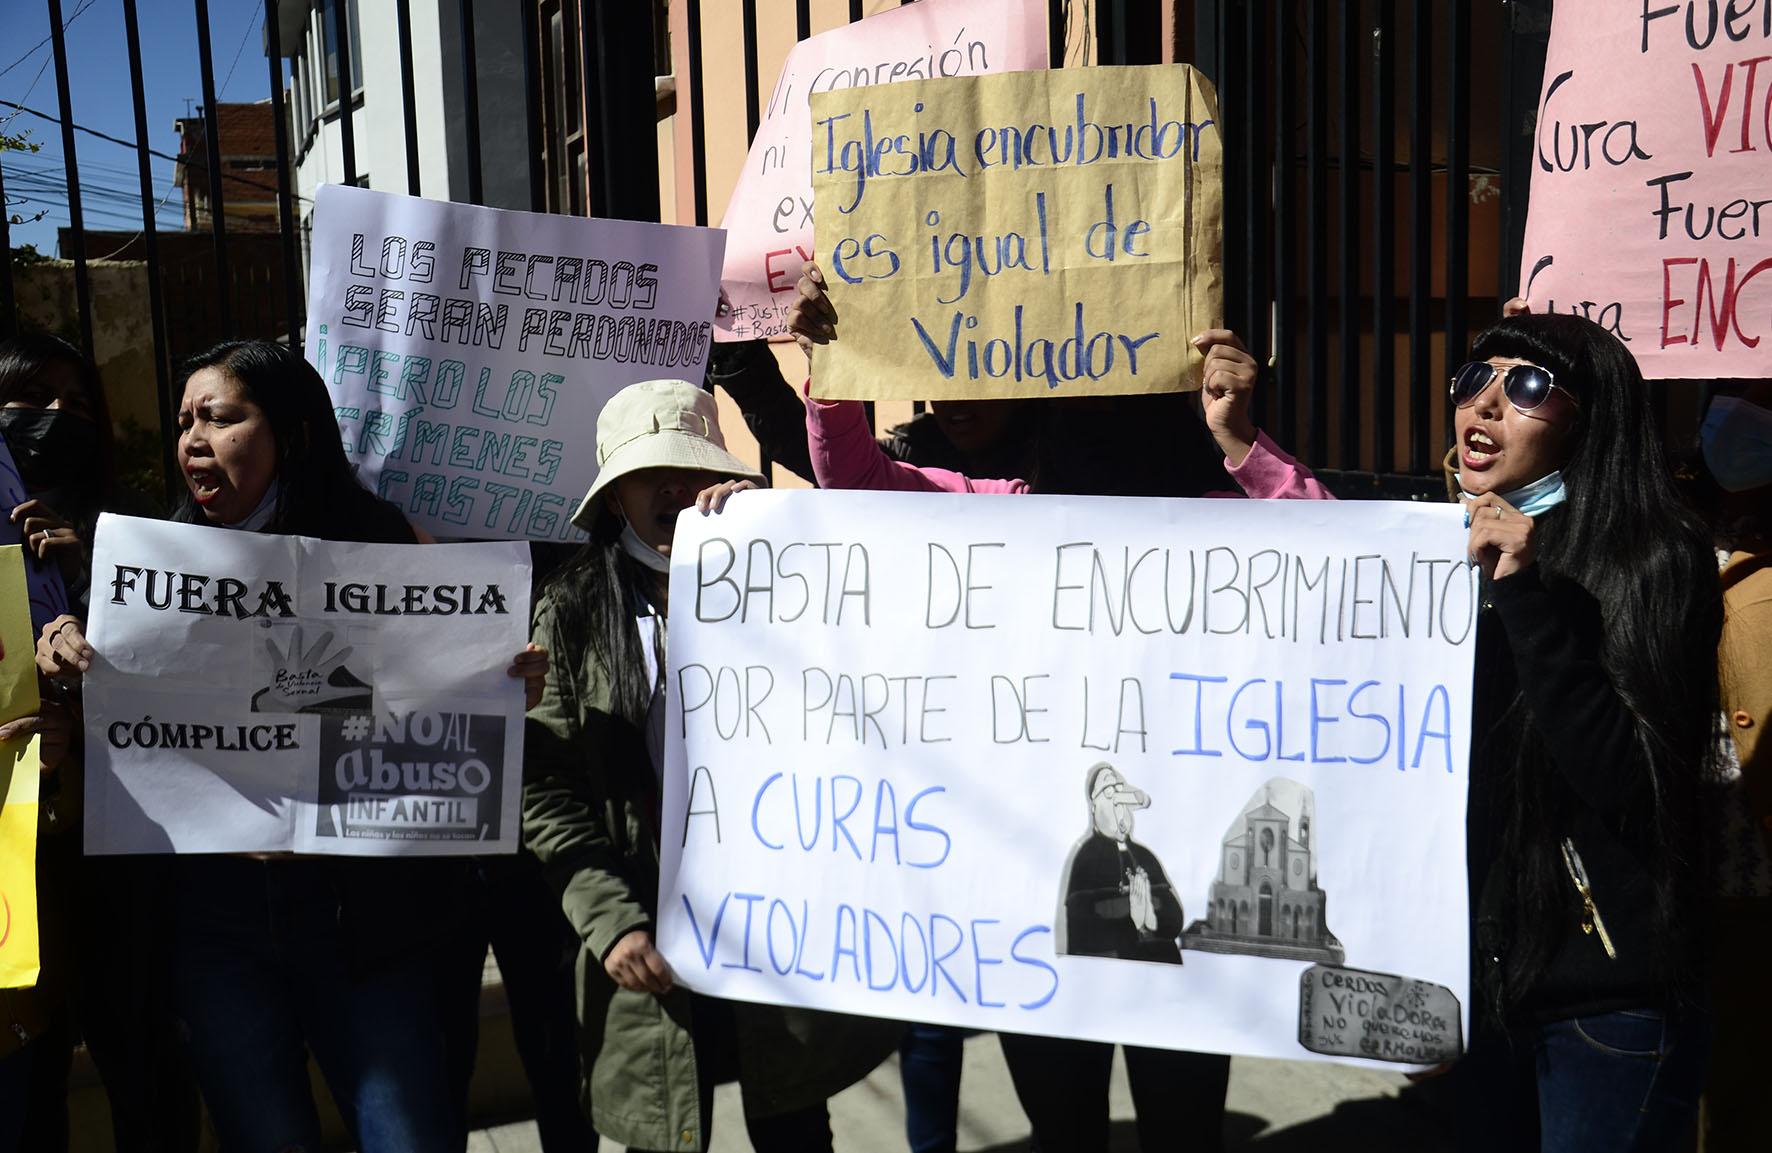 LOS PECADOS
SERAN PERDONADOS
¡PERO LOS
CRÍMENES
CASTIG
Ni confesión
ni
ex
#Justic
#Basta
Iglesia encubridor
es igual de
Violador
Fuer
Cura VIO
Fuer
Cura ENC
FUERA IGLESIA
Basta
de Violencia
Sexual
CÓMPLICE
#NO AL
abuso
INFANTIL
Los niños y las niñas no se tocan
BASTA DE ENCUBRIMIENTO
POR PARTE DE LA IGLESIA
A CURAS
VIOLADORES
CERDOS
VIOLADORES
NO QUEREMOS
SUS SERMONES